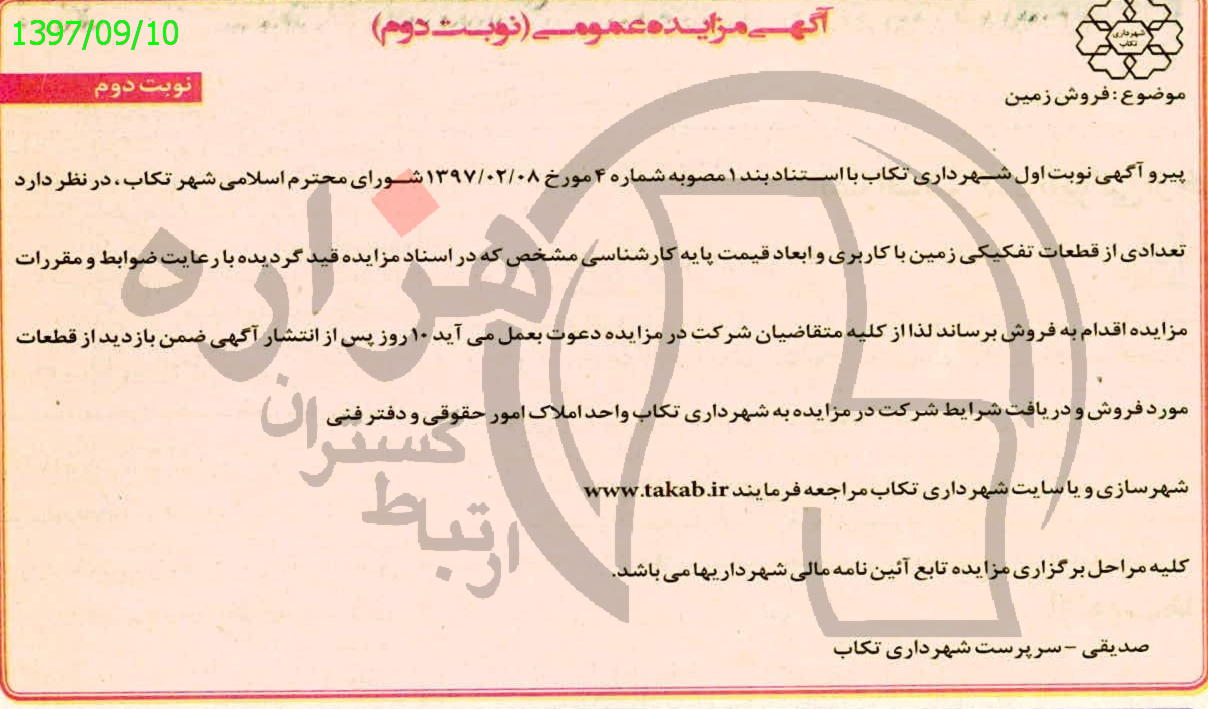 1397/09/10
آگهی مزایده عمومی (نوبت دوم)
شهرداری
تکاب
نوبت دوم
موضوع : فروش زمین
پیرو آگهی نوبت اول شهرداری تکاب با استناد بند ۱ مصوبه شماره ۴ مورخ ۱۳۹۷/۰۲/۰۸ شورای محترم اسلامی شهر تکاب ، در نظر دارد
تعدادی از قطعات تفکیکی زمین با کاربری و ابعاد قیمت پایه کارشناسی مشخص که در اسناد مزایده قید گردیده با رعایت ضوابط و مقررات
مزایده اقدام به فروش برساند لذا از کلیه متقاضیان شرکت در مزایده دعوت بعمل می آید ۱۰ روز پس از انتشار آگهی ضمن بازدید از قطعات
مورد فروش و دریافت شرایط شرکت در مزایده به شهرداری تکاب واحد املاک امور حقوقی و دفتر فنی
شهرسازی و یا سایت شهرداری تکاب مراجعه فرمایند www.takab.ir
کلیه مراحل برگزاری مزایده تابع آئین نامه مالی شهرداریها می باشد.
صدیقی - سرپرست شهرداری تکاب
هزاره
گستران
ارتباط